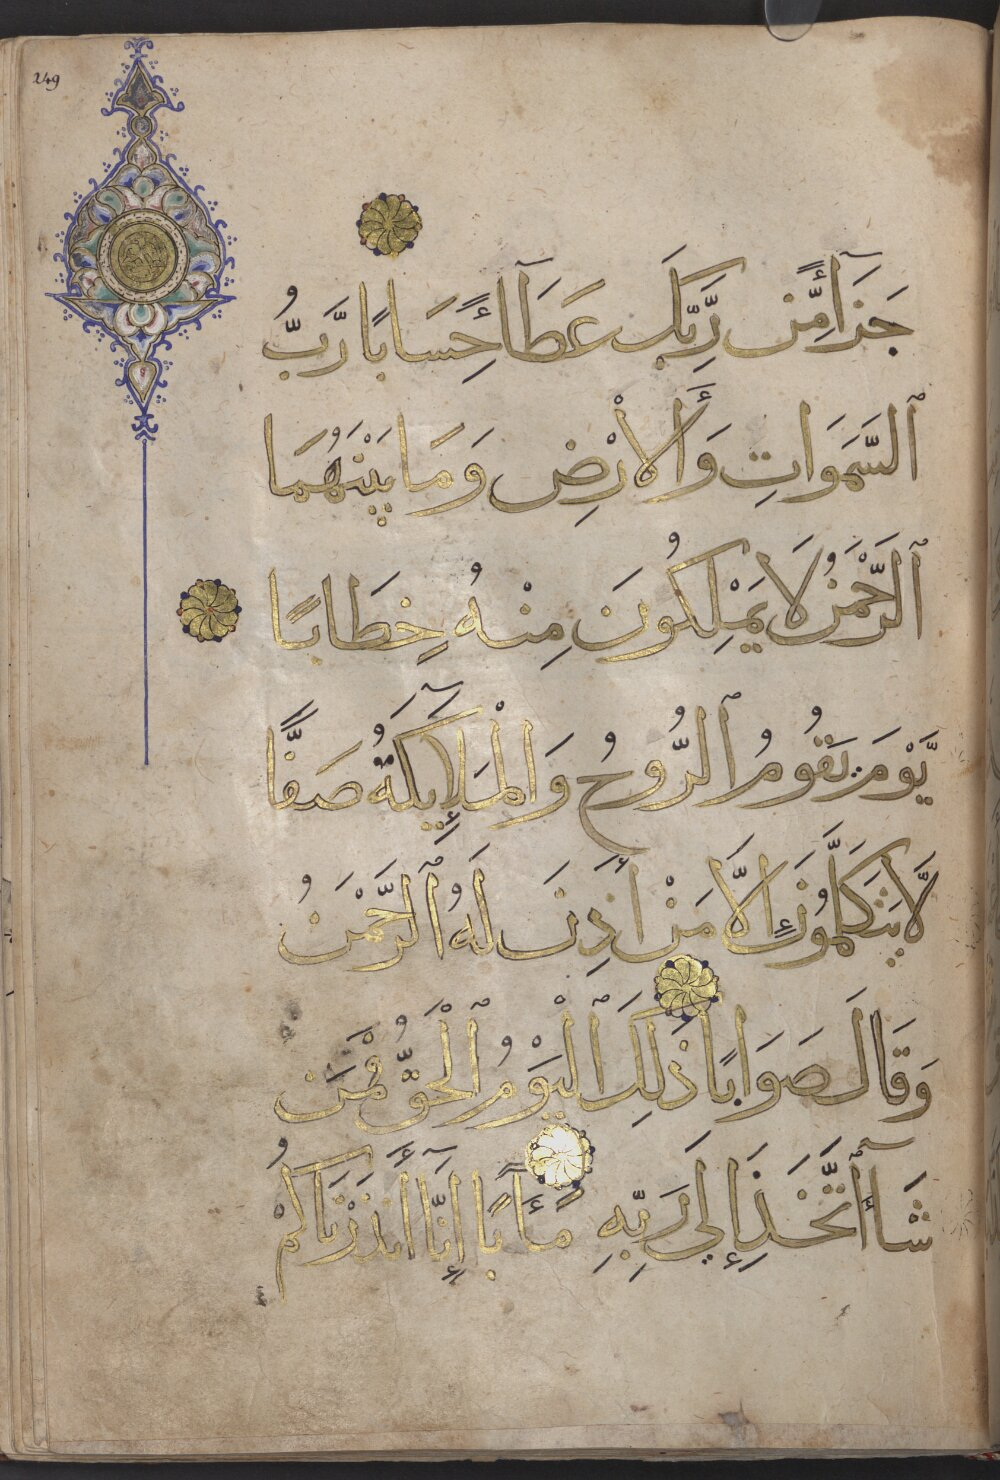 249
جَزَآءً مِّن رَّبِّكَ عَطَآءً حِسَابًا رَّبُّ
ٱلسَّمَوَاتِ وَٱلْأَرْضِ وَمَا بَيْنَهُمَا
ٱلرَّحْمَنُ لَا يَمْلِكُونَ مِنْهُ خِطَابًا
يَّوْمَ يَقُومُ ٱلرُّوحُ وَالْمَلَآئِكَةُ صَفًّا
لَّا يَتَكَلَّمُونَ إِلَّا مَنْ أَذِنَ لَهُ ٱلرَّحْمَنُ
وَقَالَ صَوَابًا ذَلِكَ ٱلْيَوْمُ ٱلْحَقُّ فَمَن
شَآءَ ٱتَّخَذَ إِلَى رَبِّهِ مَـَٔابًا إِنَّآ أَنذَرْنَاكُمْ